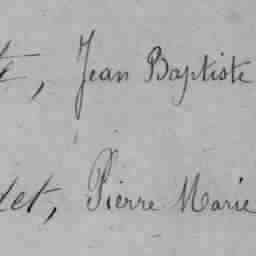 , Jean Baptiste
det, Pierre Marie